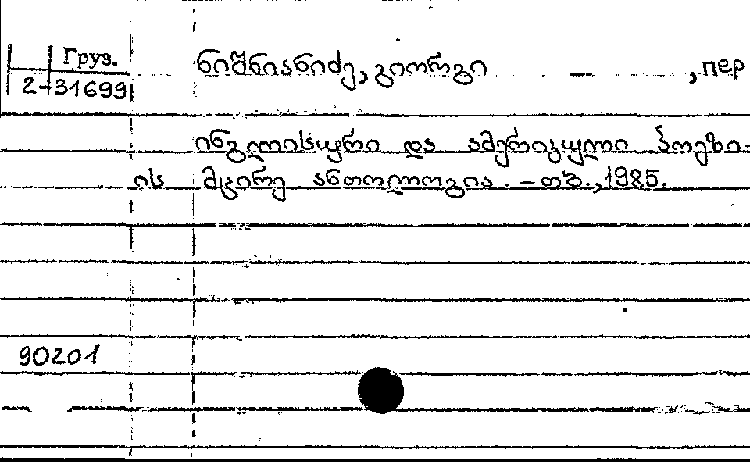 Груз.
2-31699
ნიშნიანიძე, გიორგი — , пер
ინგლისური და ამერიკული პოეზი-
ის მცირე ანთოლოგია. – თბ., 1985.
90201